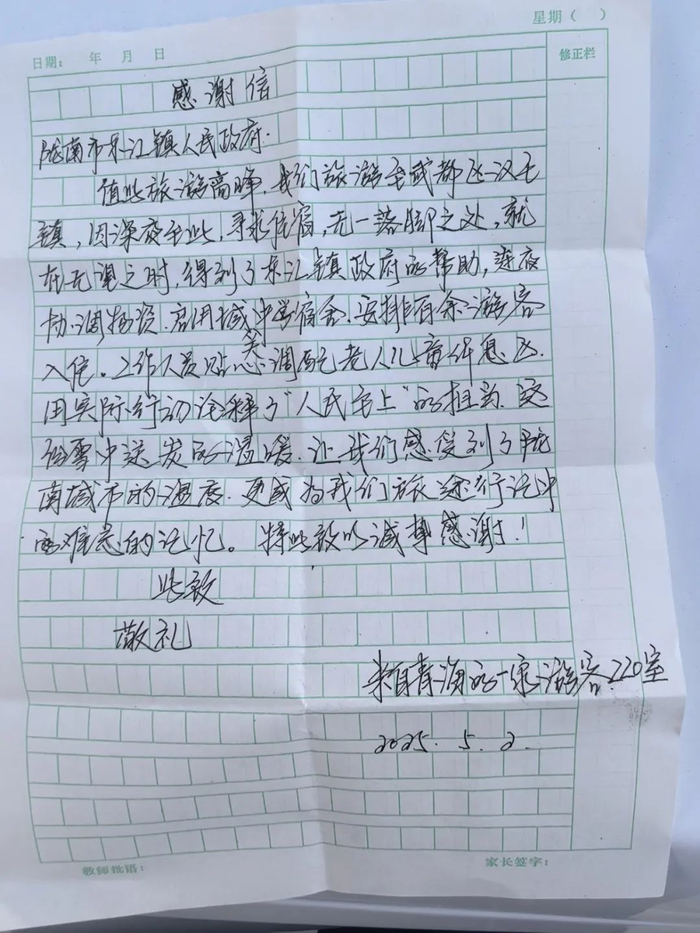 星期（ ）
日期： 年 月 日
修正栏
感谢信
陇南市东江镇人民政府.
值此旅游高峰,我们旅游至武都区汉王
镇,因深夜至此,寻求住宿,无一落脚之处,就
在无望之时,得到了东江镇政府的帮助,连夜
协调物资.启用城中学宿舍.安排百余游客
入住。工作人员贴心调配老人儿童休息区.
用实际行动诠释了"人民至上"的担当.这
份雪中送炭的温暖.让我们感受到了陇
南城市的温度.更成为我们旅途行记中
的难忘的记忆。特此致以诚挚感谢!
此致
敬礼
来自青海的一家游客.220室
2025.5.2.
教师批语：
家长签字：